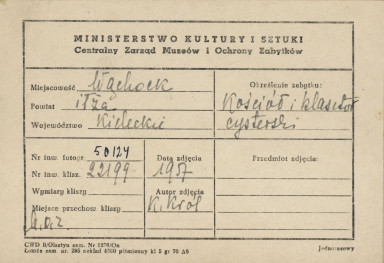 MINISTERSTWO KULTURY I SZTUKI
Centralny Zarząd Muzeów i Ochrony Zabytków
Miejscowość Wąchock
Powiat iłża
Województwo Kieleckie
Określenie zabytku:
Kościół i klasztor
cysterski
Nr inw. fotogr. 50124
Nr inw. klisz. 22199
Wymiary kliszy
Miejsce przechow. kliszy
Data zdjęcia
1957
Autor zdjęcia
K. Król
Przedmiot zdjęcia:
CWD R/Olsztyn zam. Nr 1276/On
Jednorazowy